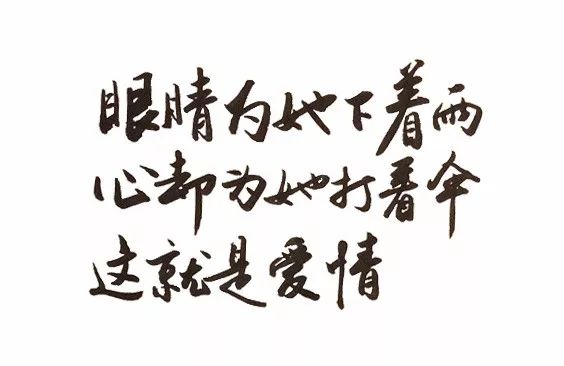 眼睛为她下着雨
心却为她打着伞
这就是爱情